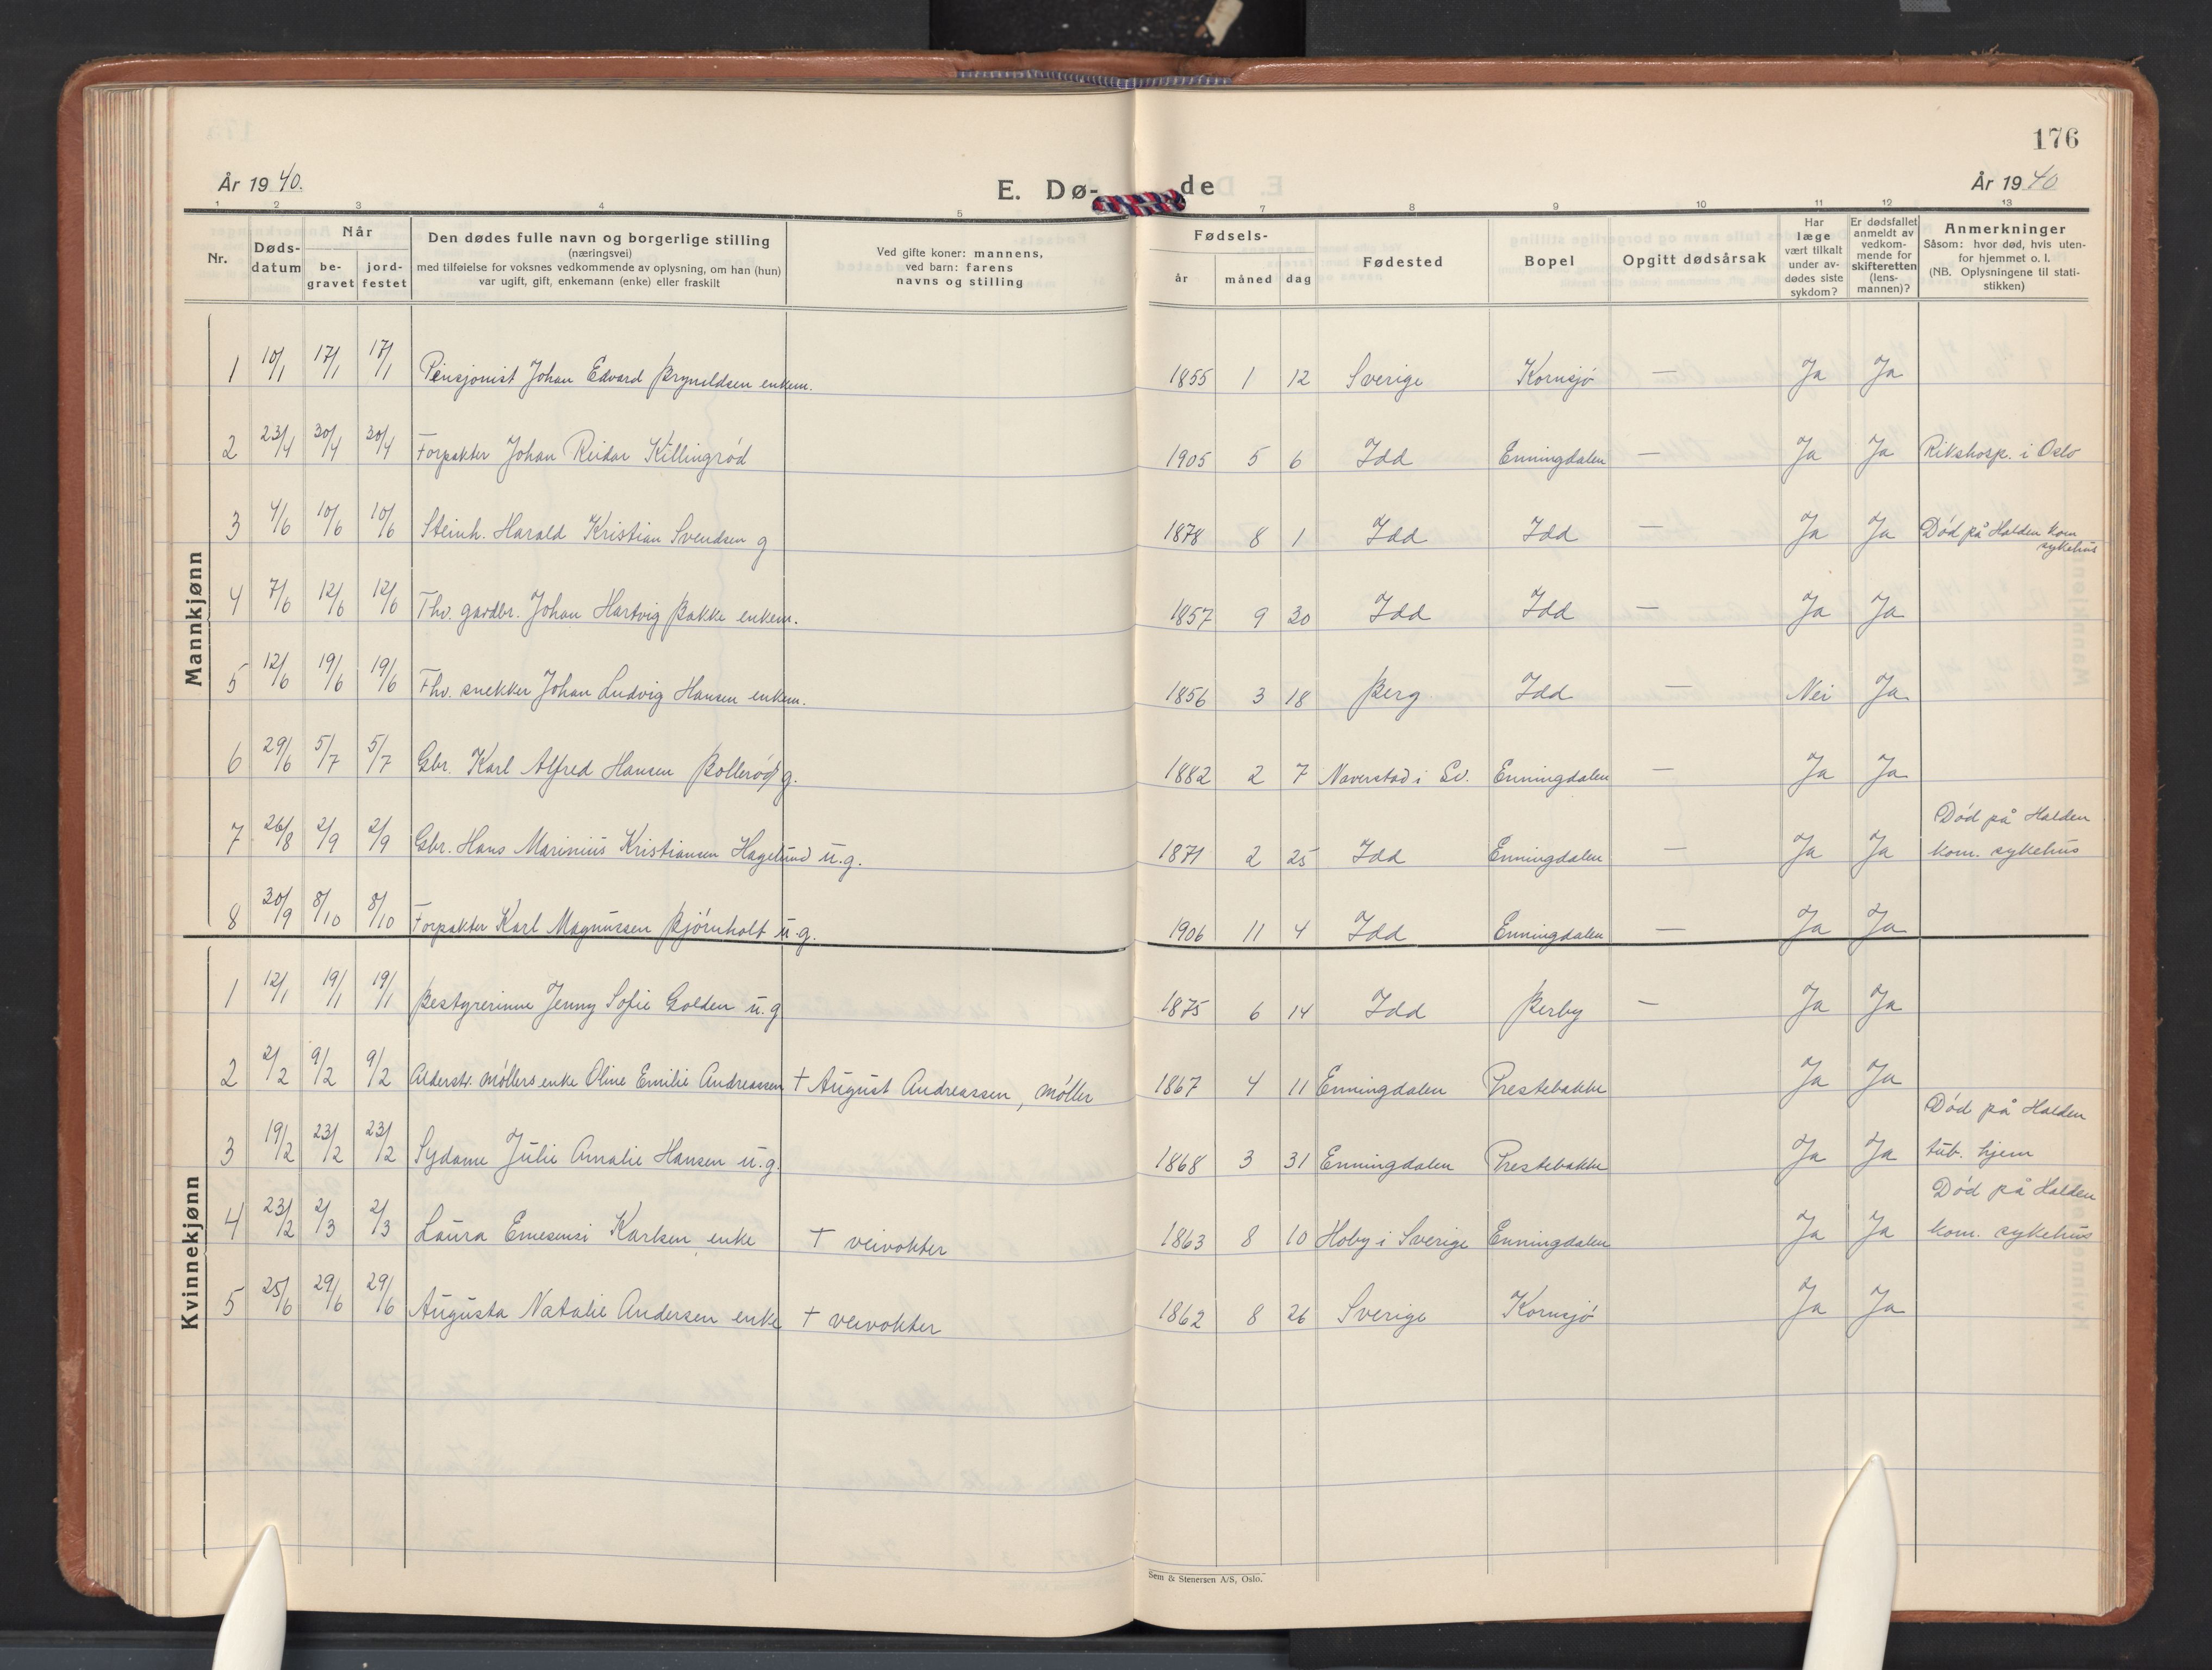 176
År 1940.
E. Dø-
de
År 1940
1 2 3 4 5 7 8 9 10 11 12 13
Nr.
Døds-
datum
Når
be-
gravet
jord-
festet
Den dødes fulle navn og borgerlige stilling
(næringsvei)
med tilføielse for voksnes vedkommende av oplysning, om han (hun)
var ugift, gift, enkemann (enke) eller fraskilt
Ved gifte koner: mannens,
ved barn: farens
navns og stilling
Fødsels-
år måned dag
Fødested
Bopel
Opgitt dødsårsak
Har
læge
vært tilkalt
under av-
dødes siste
sykdom?
Er dødsfallet
anmeldt av
vedkom-
mende for
skifteretten
(lens-
mannen)?
Anmerkninger
Såsom: hvor død, hvis uten-
for hjemmet o. l.
(NB. Oplysningene til stati-
stikken)
Mannkjønn
1 10/1 17/1 17/1 Pensjonist Johan Edvard Brynildsen enkem. 1855 1 12 Sverige Kornsjø — Ja Ja
2 23/4 30/4 30/4 Forpakter Johan Reidar Killingrød 1905 5 6 Idd Enningdalen — Ja Ja Rikshosp. i Oslo
3 4/6 10/6 10/6 Steinh. Harald Kristian Svendsen g 1878 8 1 Idd Idd — Ja Ja Død på Halden kom
sykehus
4 7/6 12/6 12/6 Fhv. gardbr. Johan Hartvig Bakke enkem. 1857 9 30 Idd Idd — Ja Ja
5 12/6 19/6 19/6 Fhv. snekker Johan Ludvig Hansen enkem. 1856 3 18 Berg Idd — Nei Ja
6 29/6 5/7 5/7 Gbr. Karl Alfred Hansen Bollerød g. 1882 2 7 Naverstad i Sv. Enningdalen — Ja Ja
7 26/8 2/9 2/9 Gbr. Hans Marinius Kristiansen Hagelund u.g. 1871 2 25 Idd Enningdalen — Ja Ja Død på Halden
kom. sykehus
8 30/9 8/10 8/10 Forpakter Karl Magnussen Bjørnholt u.g. 1906 11 4 Idd Enningdalen — Ja Ja
Kvinnekjønn
1 12/1 19/1 19/1 Bestyrerinne Jenny Sofie Golden u.g 1875 6 14 Idd Berby — Ja Ja
2 2/2 9/2 9/2 Alderstr. møllers enke Oline Emilie Andreassen + August Andreassen, møller 1867 4 11 Enningdalen Prestebakke Ja Ja
3 19/2 23/2 23/2 Sydame Julie Amalie Hansen u.g. 1868 3 31 Enningdalen Prestebakke Ja Ja Død på Halden
tub. hjem
4 23/2 2/3 2/3 Laura Karlsen enke + veivokter 1863 8 10 Hoby i Sverige Enningdalen Ja Ja Død på Halden
kom. sykehus
5 25/6 29/6 29/6 Augusta Natalie Andersen enke + veivokter 1862 8 26 Sverige Kornsjø Ja Ja
Sem & Stenersen A/S, Oslo.